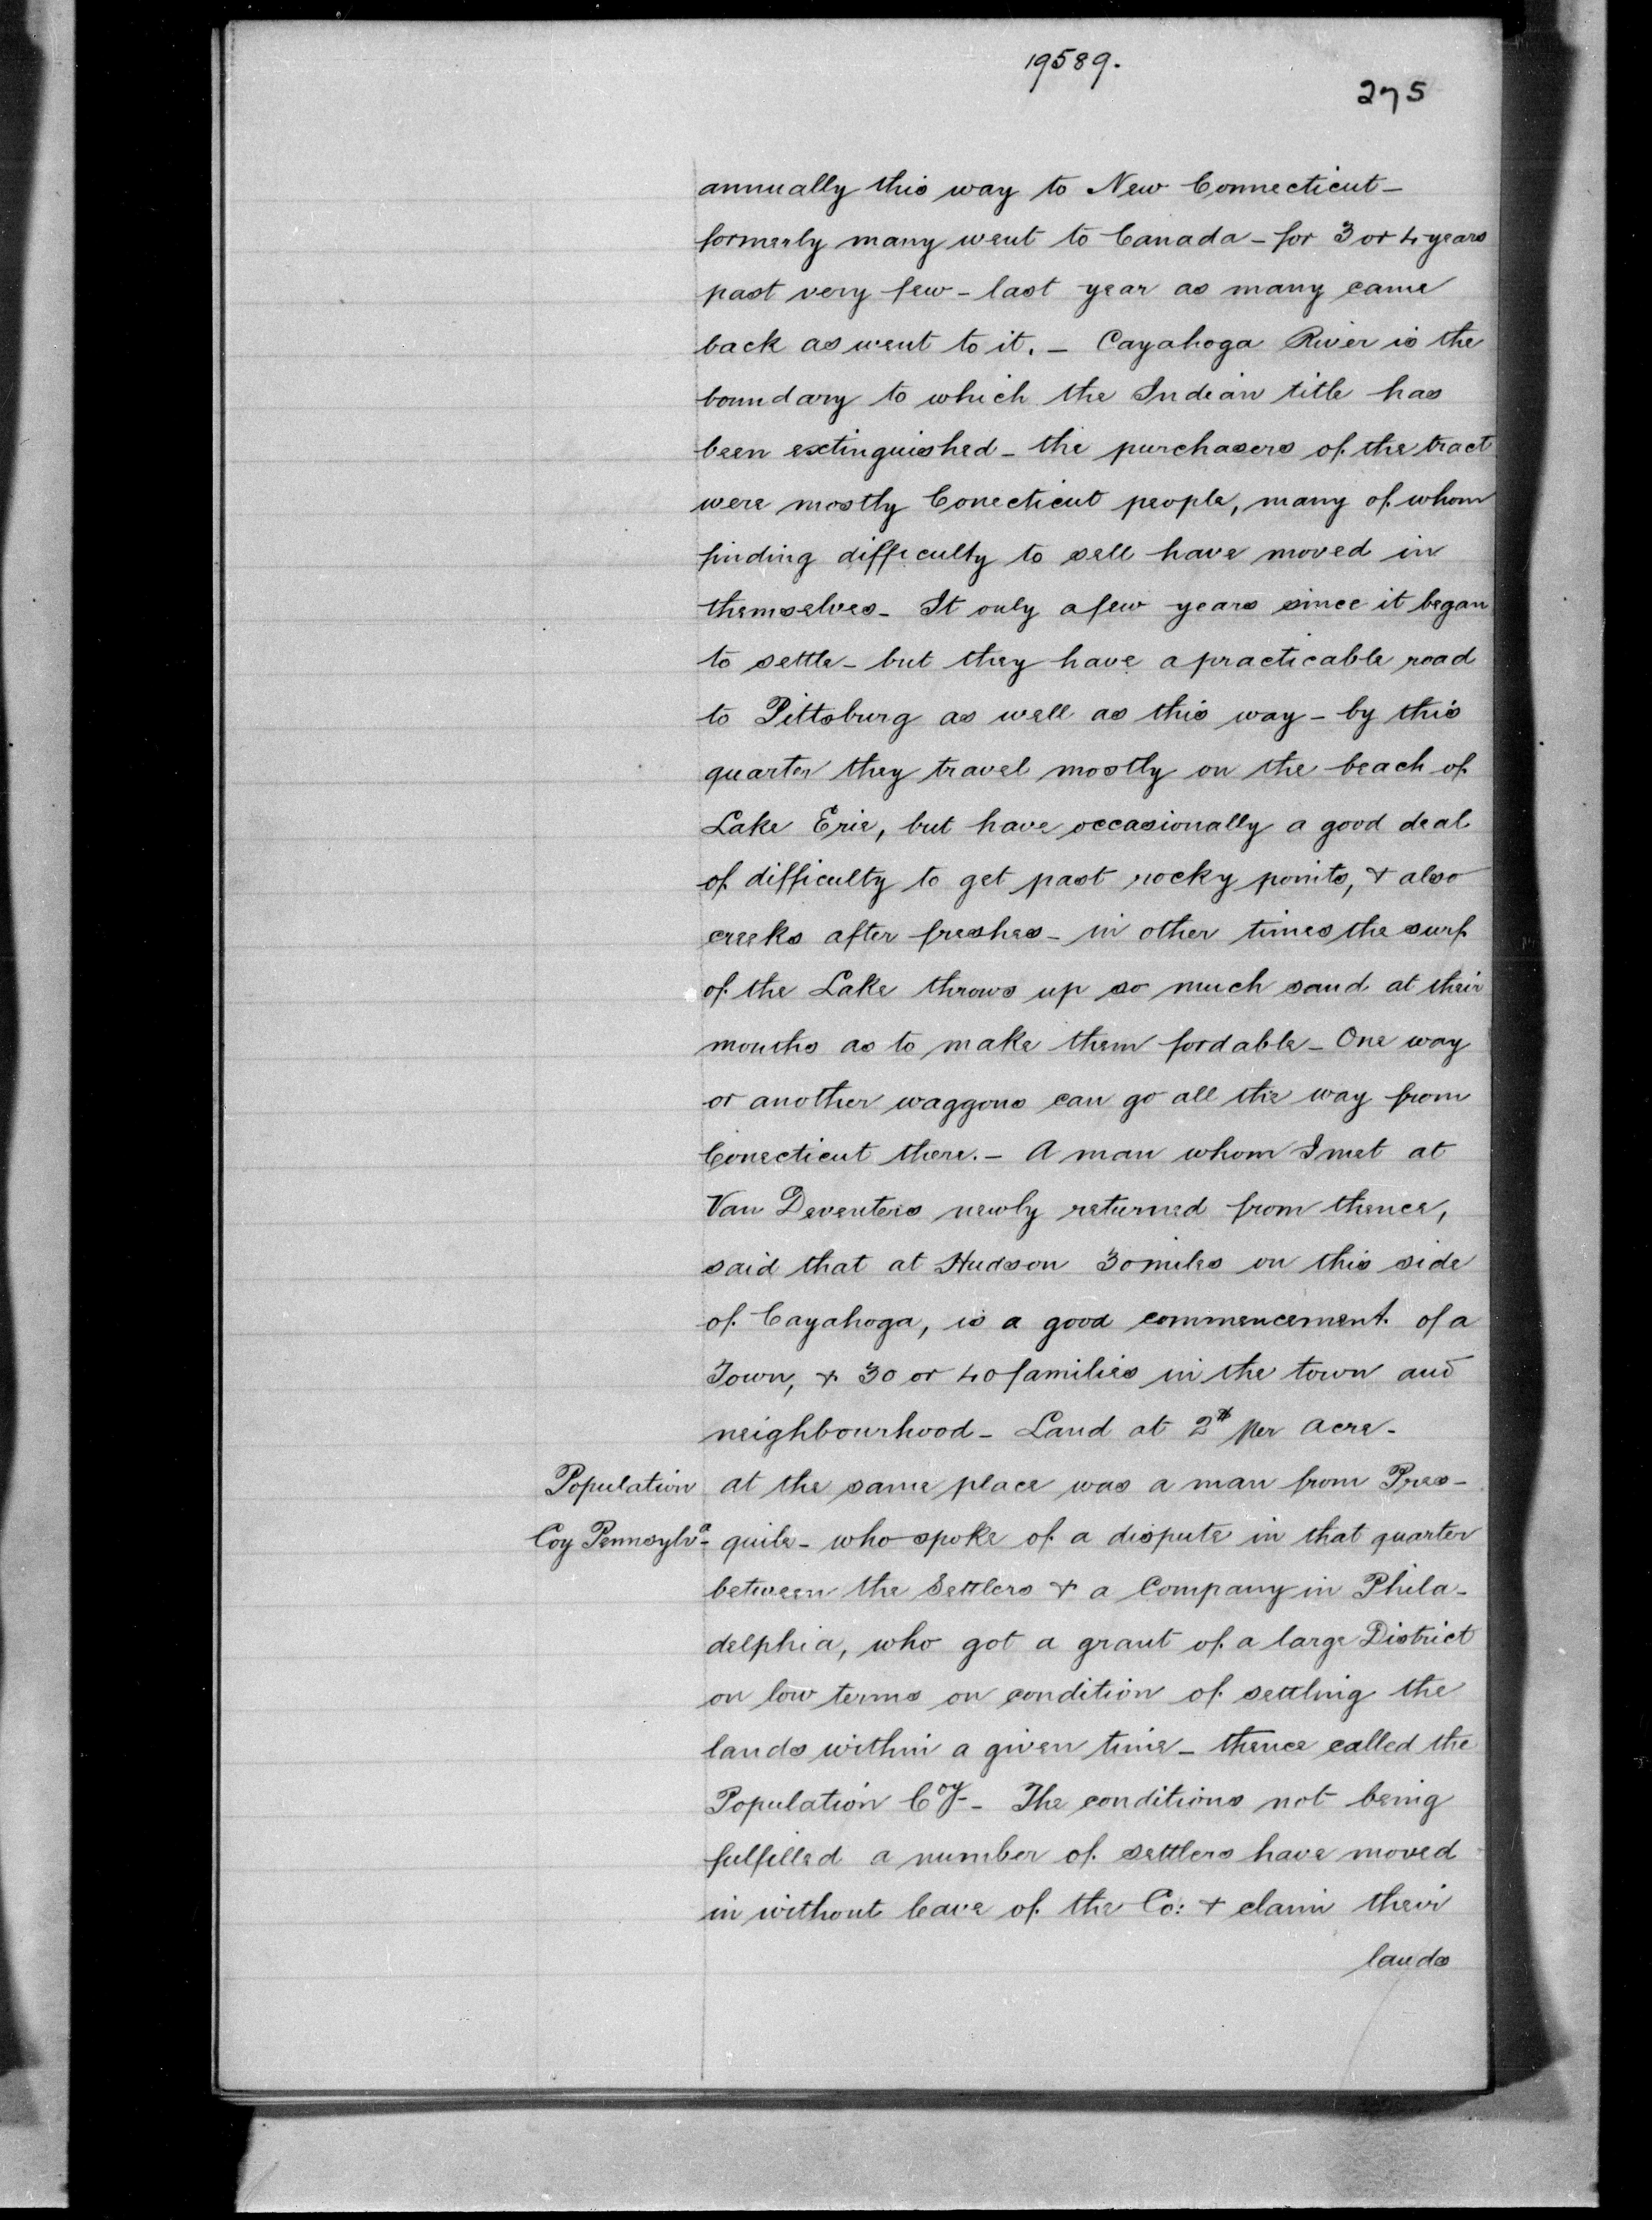 19589.
275
annually this way to New Connecticut –
formerly many went to Canada – for 3 or 4 years
past very few – last year as many came
back as went to it. – Cayahoga River is the
boundary to which the Indian title has
been extinguished – the purchasers of the tract
were mostly Conecticut people, many of whom
finding difficulty to sell have moved in
themselves – It only a few years since it began
to settle – but they have a practicable road
to Pittsburg as well as this way – by this
quarter they travel mostly on the beach of
Lake Erie, but have occasionally a good deal
of difficulty to get past rocky points, & also
creeks after freshes – in other times the surf
of the Lake throws up so much sand at their
mouths as to make them fordable – One way
or another waggons can go all the way from
Conecticut there. – A man whom I met at
Van Deventers newly returned from thence,
said that at Hudson 30 miles on this side
of Cayahoga, is a good commencement of a
Town, & 30 or 40 families in the town and
neighbourhood – Land at 2$ per acre –
Population at the same place was a man from Pres-
Coy Pennsylva – quile – who spoke of a dispute in that quarter
between the Settlers & a Company in Phila-
delphia, who got a grant of a large District
on low terms on condition of settling the
lands within a given time – thence called the
Population Coy – The conditions not being
fulfilled a number of settlers have moved
in without leave of the Co: & claim their
lands